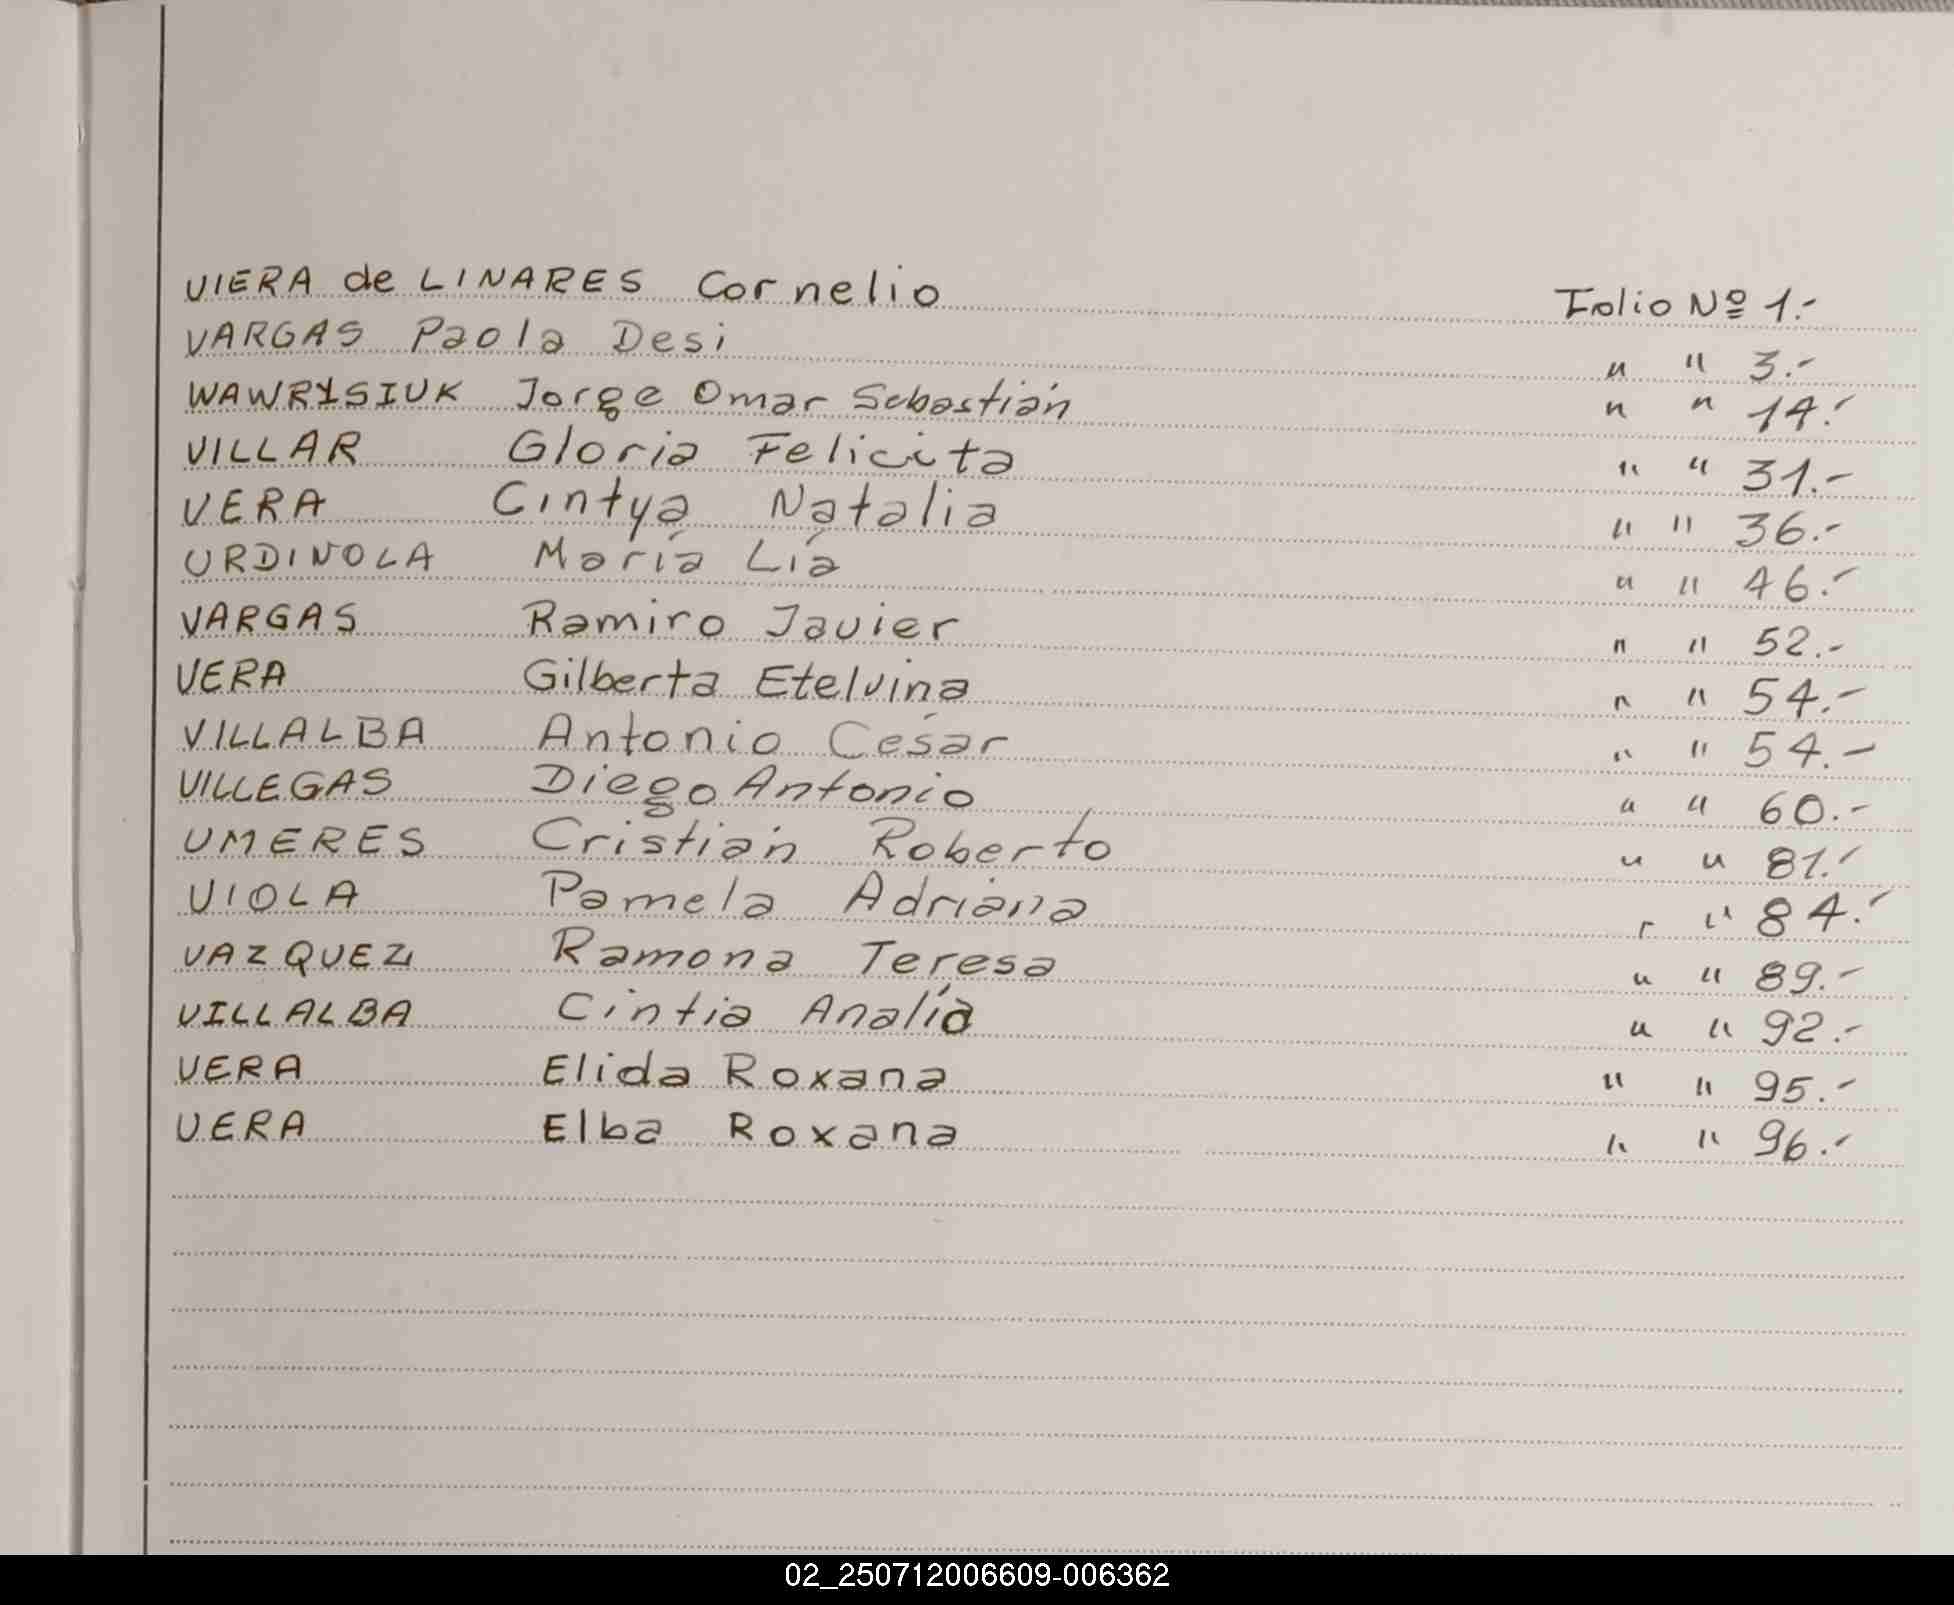 VIERA de LINARES Cornelio Folio Nº 1.-
VARGAS Paola Desi " " 3.-
WAWRYSIUK Jorge Omar Sebastián " " 14.-
VILLAR Gloria Felicita " " 31.-
VERA Cintya Natalia " " 36.-
URDINOLA María Lía " " 46.-
VARGAS Ramiro Javier " " 52.-
VERA Gilberta Etelvina " " 54.-
VILLALBA Antonio César " " 54.-
VILLEGAS Diego Antonio " " 60.-
UMERES Cristián Roberto " " 81.-
VIOLA Pamela Adriana " " 84.-
VAZQUEZ Ramona Teresa " " 89.-
VILLALBA Cintia Analía " " 92.-
VERA Elida Roxana " " 95.-
VERA Elba Roxana " " 96.-
02_250712006609-006362